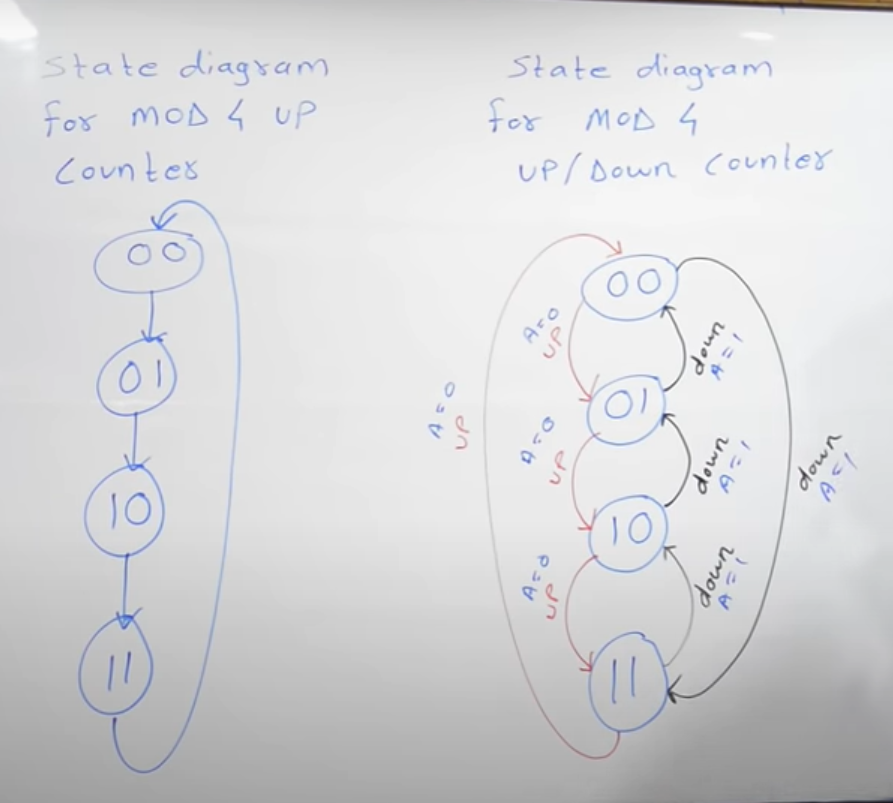 State diagram
for MOD 4 UP
Counter
00
01
10
11
State diagram
for MOD 4
UP/Down Counter
00
A=0
UP
down
A=1
01
A=0
UP
A=0
UP
down
A=1
down
A=1
10
A=0
UP
down
A=1
11